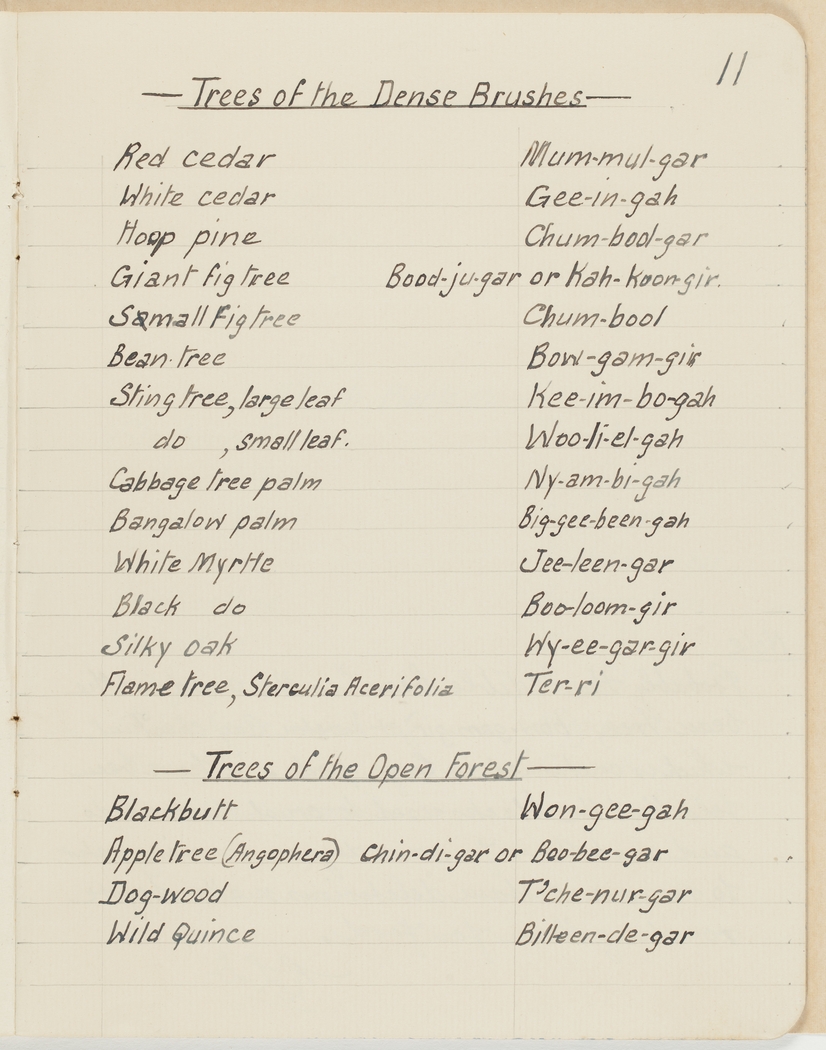 11
— Trees of the Dense Brushes —
Red cedar Mum-mul-gar
White cedar Gee-in-gah
Hoop pine Chum-bool-gar
Giant fig tree Bood-ju-gar or Kah-koon-gir.
Small Fig tree Chum-bool
Bean-tree Bow-gam-gir
Sting tree, large leaf Kee-im-bo-gah
do , small leaf. Woo-li-el-gah
Cabbage tree palm Ny-am-bi-gah
Bangalow palm Big-gee-been-gah
White Myrtle Jee-leen-gar
Black do Boo-loom-gir
Silky oak Wy-ee-gar-gir
Flame tree, Sterculia Acerifolia Ter-ri
— Trees of the Open Forest —
Blackbutt Won-gee-gah
Apple tree (Angophera) Chin-di-gar or Boo-bee-gar
Dog-wood T'che-nur-gar
Wild Quince Billeen-de-gar